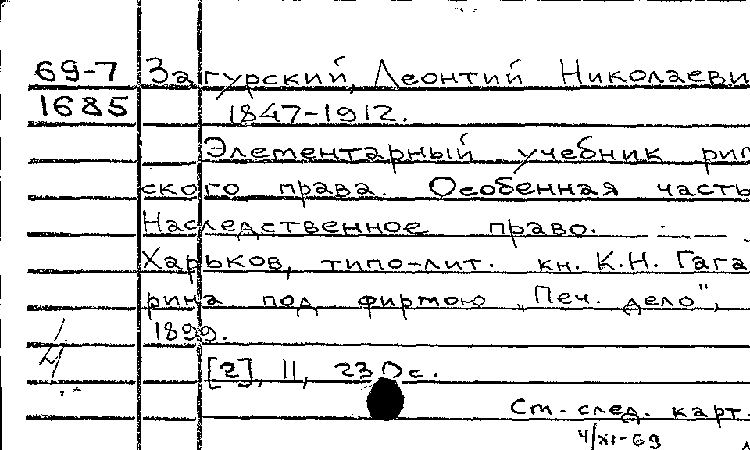 69-7 Загурский, Леонтий Николаеви
1685 1847-1912.
Элементарный учебник рим
ского права. Особенная часть
Наследственное право.
Харьков, типо-лит. кн. К.Н. Гага
рина под фирмою „Печ. дело",
1899.
[2], II, 230 с.
См. след. карт.
4/XI-69